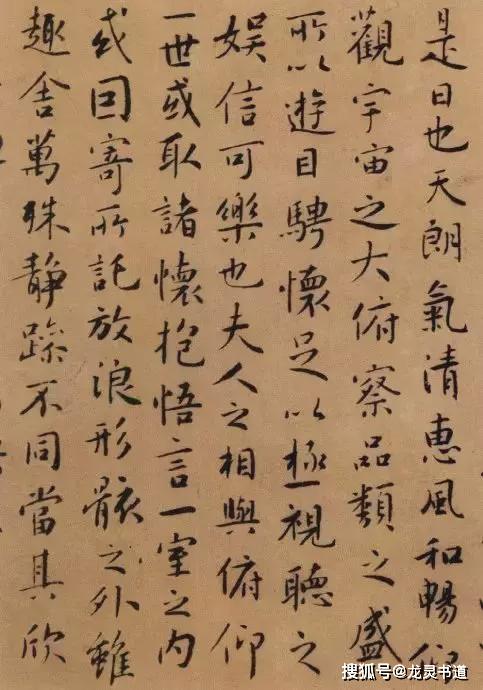 是日也天朗氣清惠風和暢仰
觀宇宙之大俯察品類之盛
所以遊目騁懷足以極視聽之
娛信可樂也夫人之相與俯仰
一世或取諸懷抱悟言一室之內
或因寄所託放浪形骸之外雖
趣舍萬殊静躁不同當其欣
搜狐号@龙灵书道